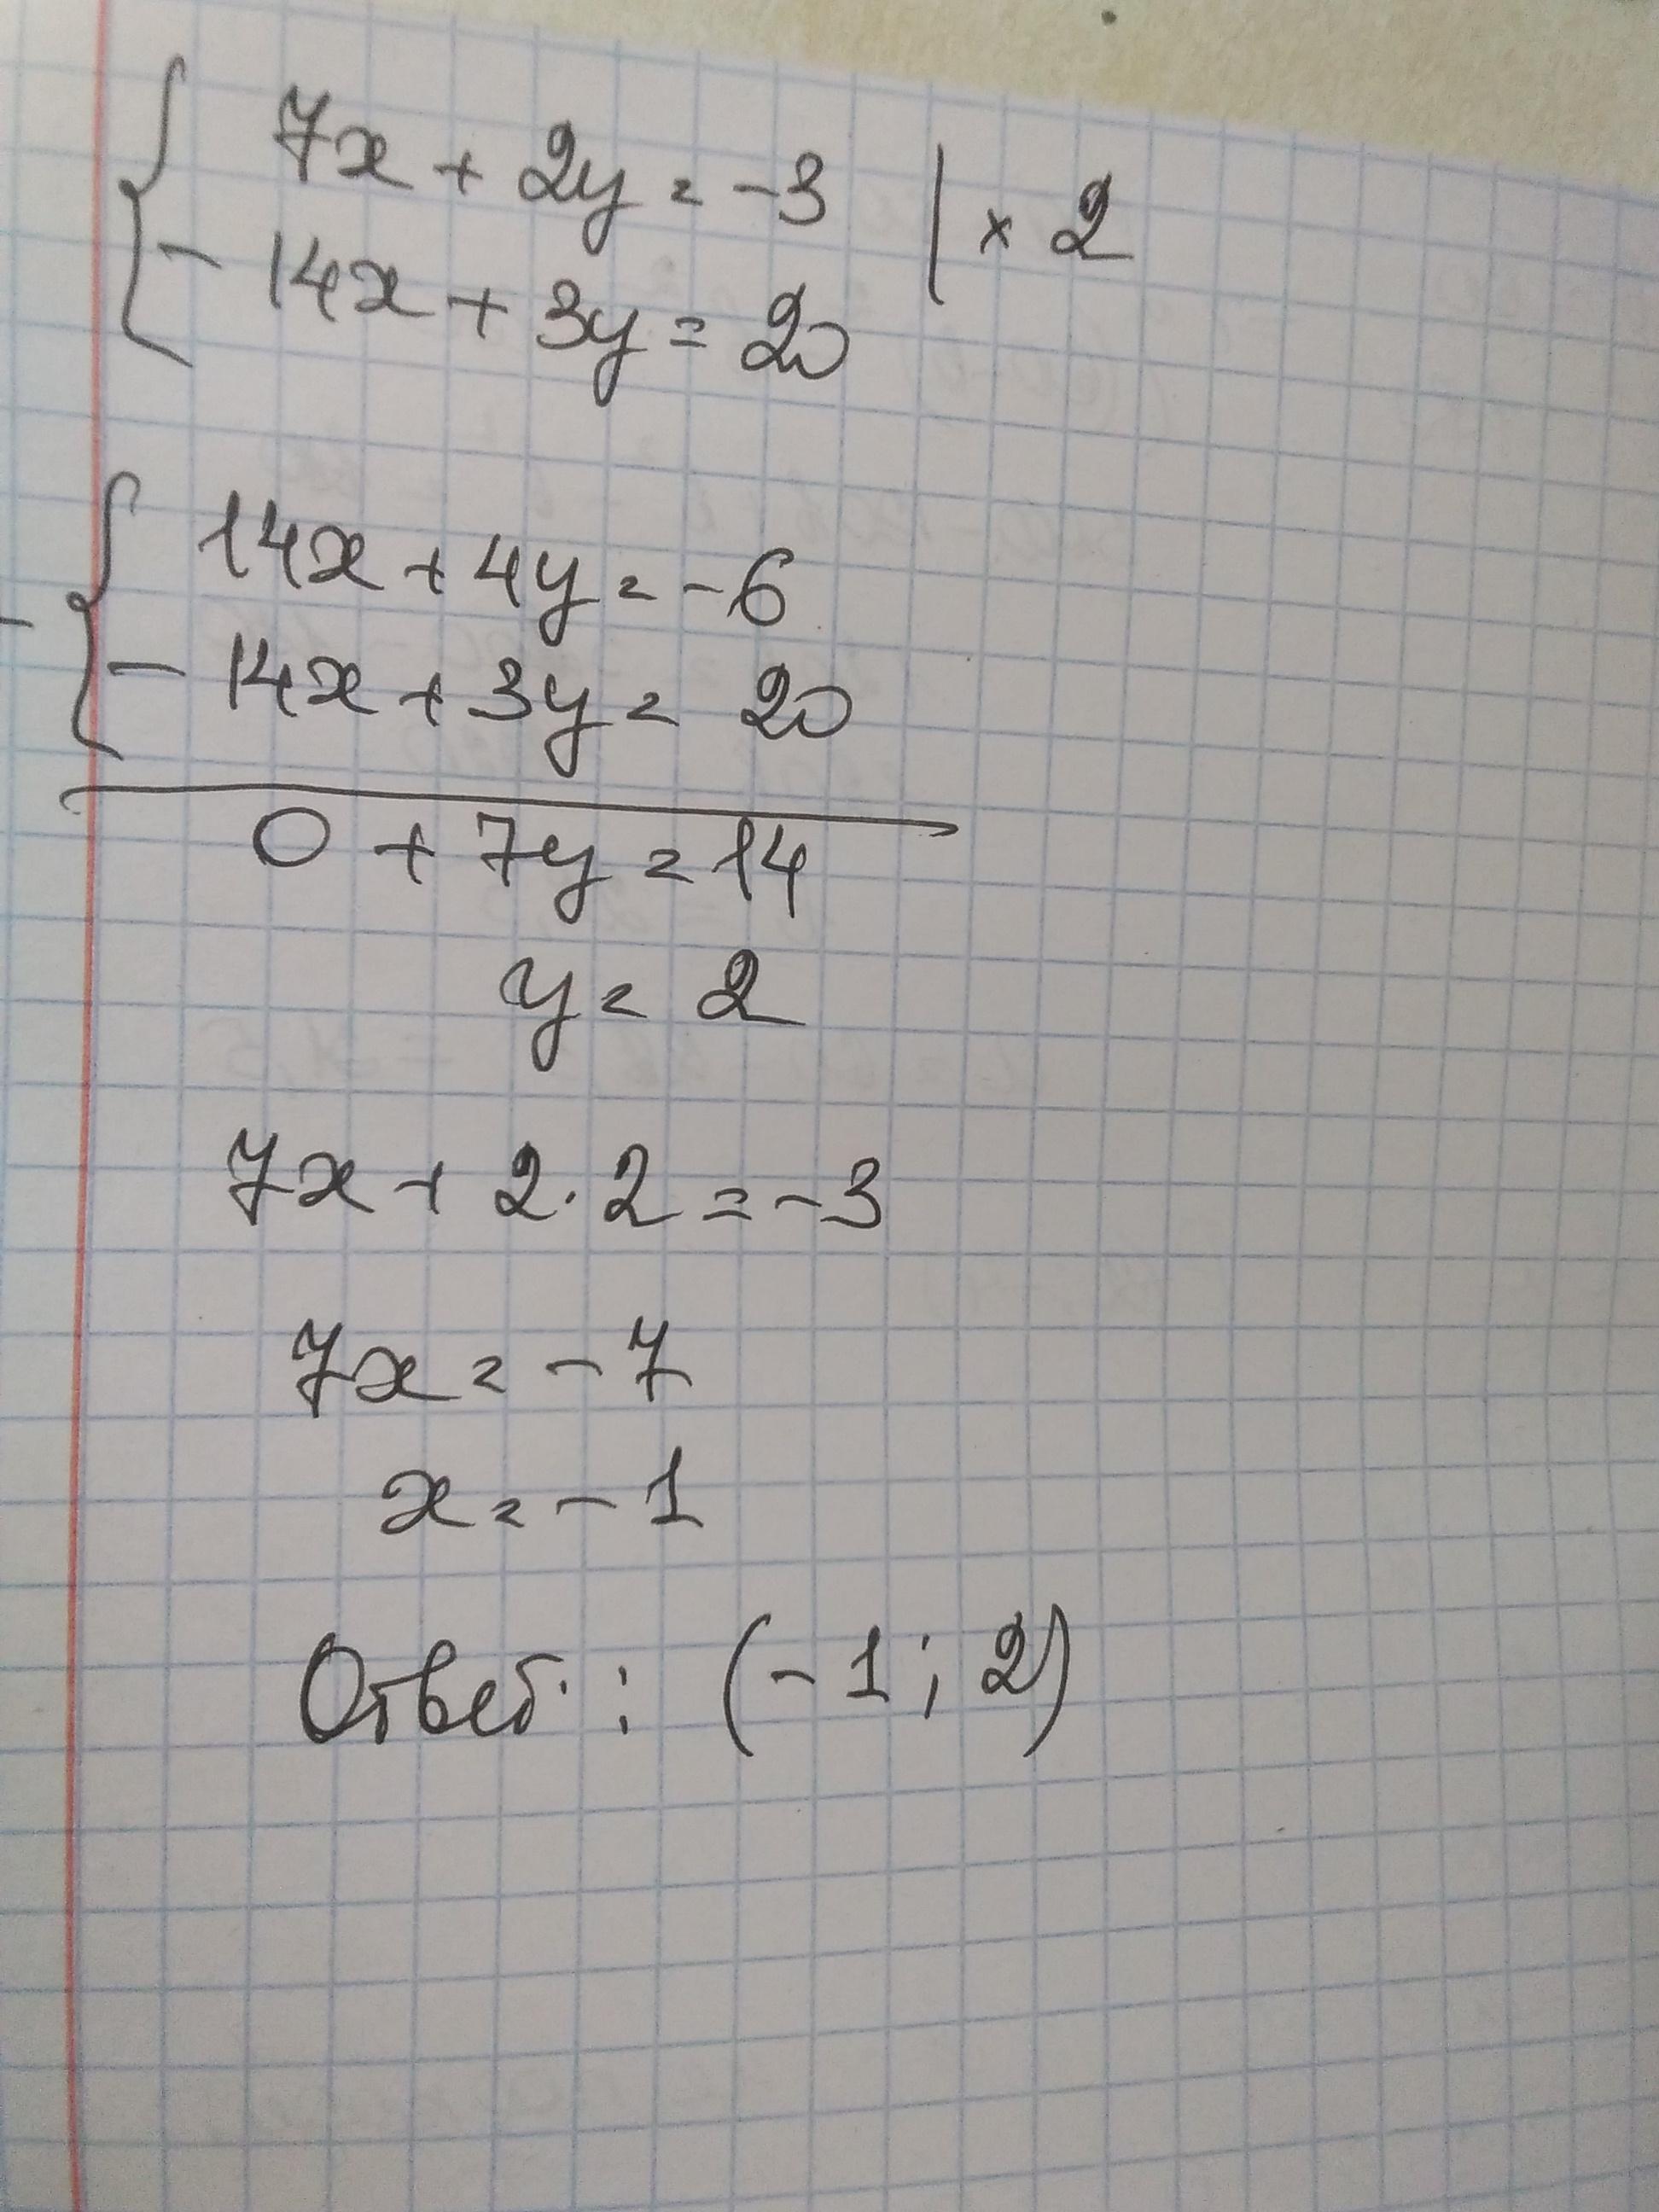 7x + 2y = -3 | × 2
- 14x + 3y = 20
14x + 4y = -6
- 14x + 3y = 20
0 + 7y = 14
y = 2
7x + 2·2 = -3
7x = -7
x = -1
Ответ: (-1; 2)